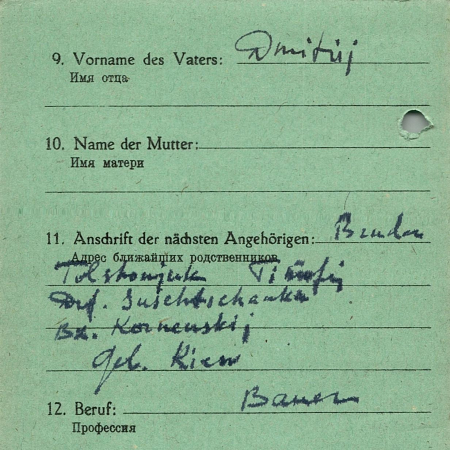 9. Vorname des Vaters: Dmitrij
Имя отца
10. Name der Mutter:
Имя матери
11. Anschrift der nächsten Angehörigen: Bruder
Адрес ближайших родственников
Timofij
Drf. Suschtschanka
Bz. Kornenskij
Geb. Kiew
12. Beruf: Bauer
Профессия